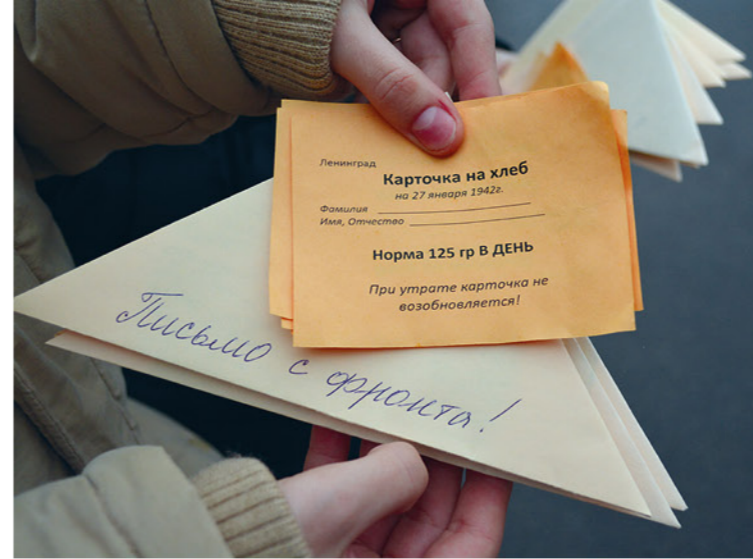 Ленинград
Карточка на хлеб
на 27 января 1942г.
Фамилия
Имя, Отчество
Норма 125 гр В ДЕНЬ
При утрате карточка не
возобновляется!
Письмо с фронта!